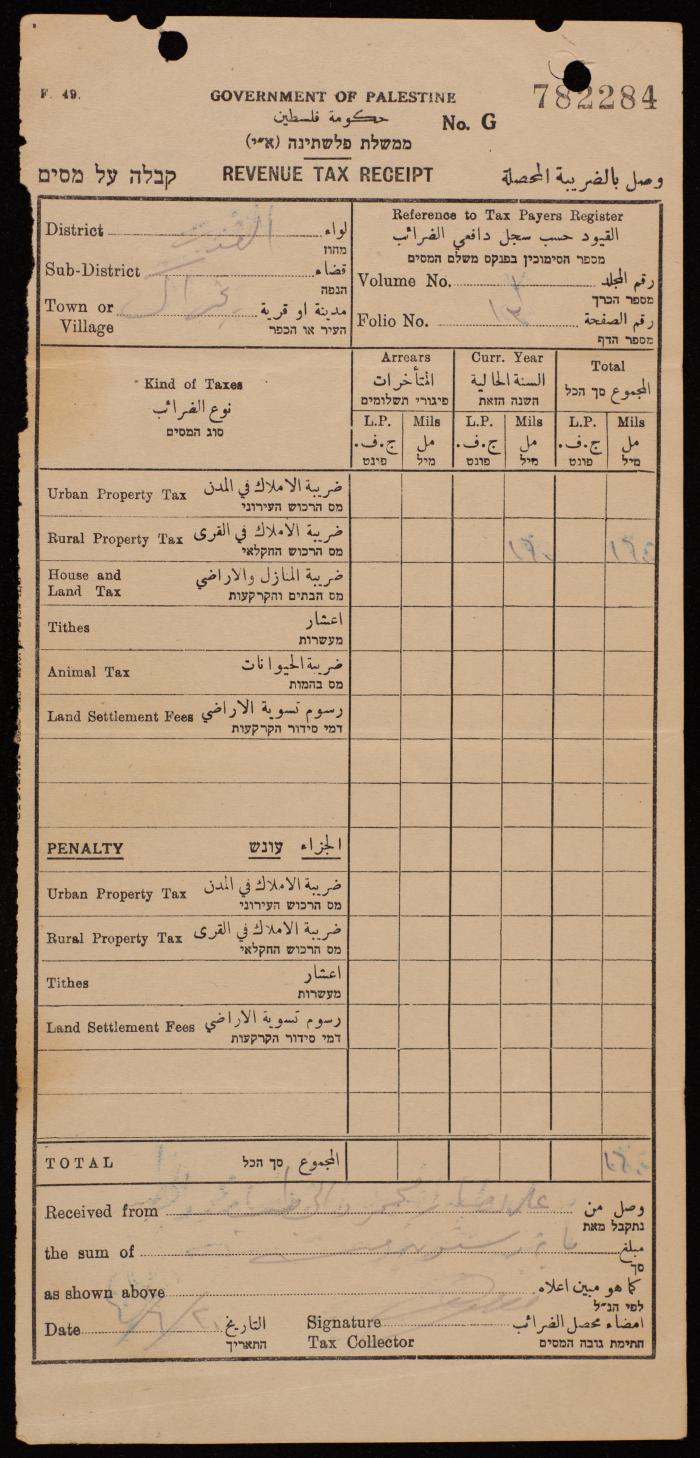 F. 49.
GOVERNMENT OF PALESTINE
782284
حكومة فلسطين
No. G
ממשלת פלשתינה (א״י)
קבלה על מסים
REVENUE TAX RECEIPT
وصل بالضريبة المحصلة
District لواء
מחוז
Sub-District قضاء
הנפה
Town or Village مدينة او قرية
העיר או הכפר
Reference to Tax Payers Register
القيود حسب سجل دافعي الضرائب
מספר הסימוכין בפנקס משלם המסים
Volume No. رقم المجلد
מספר הכרך
Folio No. ١٣ رقم الصفحة
מספר הדף
Kind of Taxes
نوع الضرائب
סוג המסים
Arrears
المتأخرات
פיגורי תשלומים
Curr. Year
السنة الحالية
השנה הזאת
Total
المجموع סך הכל
L.P. Mils L.P. Mils L.P. Mils
ج.ف. مل ج.ف. مل ج.ف. مل
פונט מיל פונט מיל פונט מיל
Urban Property Tax ضريبة الاملاك في المدن
מס הרכוש העירוני
Rural Property Tax ضريبة الاملاك في القرى
מס הרכוש החקלאי
House and Land Tax ضريبة المنازل والاراضي
מס הבתים והקרקעות
Tithes اعشار
מעשרות
Animal Tax ضريبة الحيوانات
מס בהמות
Land Settlement Fees رسوم تسوية الاراضي
דמי סידור הקרקעות
PENALTY עונש الجزاء
Urban Property Tax ضريبة الاملاك في المدن
מס הרכוש העירוני
Rural Property Tax ضريبة الاملاك في القرى
מס הרכוש החקלאי
Tithes اعشار
מעשרות
Land Settlement Fees رسوم تسوية الاراضي
דמי סידור הקרקעות
TOTAL סך הכל المجموع
Received from وصل من
נתקבל מאת
the sum of مبلغ
סך
as shown above كما هو مبين اعلاه
לפי הנ״ל
Date التاريخ
התאריך
Signature امضاء محصل الضرائب
Tax Collector חתימת גובה המסים